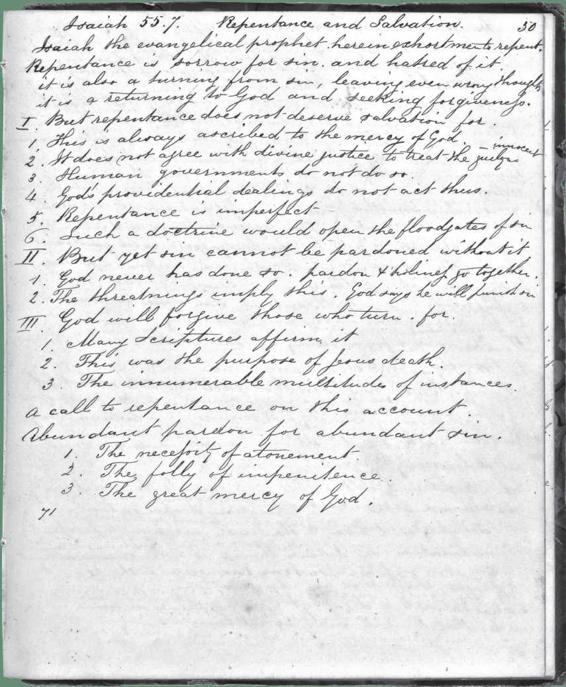 Isaiah 55.7. Repentance and Salvation. 50
Isaiah the evangelical prophet herein exhorts men to repent.
Repentance is sorrow for sin. and hatred of it.
it is also a turning from sin, leaving even wrong thoughts
it is a returning to God and seeking forgiveness.
I. But repentance does not deserve salvation for.
1. This is always ascribed to the mercy of God. – innocent
2. It does not agree with divine justice to treat the guilty as
3. Human governments do not do so.
4. God's providential dealings do not act thus.
5. Repentance is imperfect
6. Such a doctrine would open the floodgates of sin
II. But yet sin cannot be pardoned without it
1. God never has done so. pardon & holiness go together.
2. The threatnings imply this. God says he will punish sin
III. God will forgive those who turn. for.
1. Many Scriptures affirm it
2. This was the purpose of Jesus death.
3. The innumerable multitudes of instances.
A call to repentance on this account.
Abundant pardon for abundant sin.
1. The necessity of atonement
2. The folly of impenitence.
3. The great mercy of God.
71